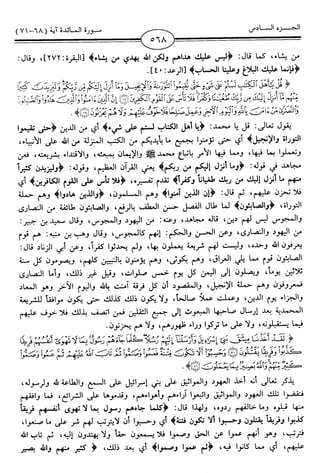 الجزء السادس
٥٦٨
سورة المائدة آية (٦٨-٧١)
من يشاء، كما قال: ﴿ليس عليك هداهم ولكن الله يهدي من يشاء﴾ [البقرة: ٢٧٢]، وقال:
﴿فإنما عليك البلاغ وعلينا الحساب﴾ [الرعد: ٤٠].
﴿ قُلْ يَٰٓأَهْلَ ٱلْكِتَٰبِ لَسْتُمْ عَلَىٰ شَىْءٍ حَتَّىٰ تُقِيمُوا۟ ٱلتَّوْرَىٰةَ وَٱلْإِنجِيلَ وَمَآ أُنزِلَ إِلَيْكُم مِّن رَّبِّكُمْ وَلَيَزِيدَنَّ كَثِيرًا
مِّنْهُم مَّآ أُنزِلَ إِلَيْكَ مِن رَّبِّكَ طُغْيَٰنًا وَكُفْرًا فَلَا تَأْسَ عَلَى ٱلْقَوْمِ ٱلْكَٰفِرِينَ ۝ إِنَّ ٱلَّذِينَ ءَامَنُوا۟ وَٱلَّذِينَ هَادُوا۟ وَٱلصَّٰبِـُٔونَ
وَٱلنَّصَٰرَىٰ مَنْ ءَامَنَ بِٱللَّهِ وَٱلْيَوْمِ ٱلْءَاخِرِ وَعَمِلَ صَٰلِحًا فَلَا خَوْفٌ عَلَيْهِمْ وَلَا هُمْ يَحْزَنُونَ ۝ ﴾
يقول تعالى: قل يا محمد: ﴿يا أهل الكتاب لستم على شيء﴾ أي من الدين ﴿حتى تقيموا
التوراة والإنجيل﴾ أي حتى تؤمنوا بجميع ما بأيديكم من الكتب المنزلة من الله على الأنبياء،
وتعملوا بما فيها، ومما فيها الأمر باتباع محمد ﷺ والإيمان بمبعثه، والاقتداء بشريعته، فعن
مجاهد في قوله: ﴿وما أنزل إليكم من ربكم﴾ يعني القرآن العظيم، وقوله: ﴿وليزيدن كثيراً
منهم ما أنزل إليك من ربك طغياناً وكفراً﴾ تقدم تفسيره، ﴿فلا تأس على القوم الكافرين﴾ أي
فلا تحزن عليهم، ثم قال: ﴿إن الذين آمنوا﴾ وهم المسلمون، ﴿والذين هادوا﴾ وهم حملة
التوراة، ﴿والصابئون﴾ لما طال الفصل حسن العطف بالرفع، والصابئون طائفة من النصارى
والمجوس ليس لهم دين، قاله مجاهد، وعنه: من اليهود والمجوس، وقال سعيد بن جبير:
من اليهود والنصارى، وعن الحسن والحكم: إنهم كالمجوس، وقال وهب بن منبه: هم قوم
يعرفون الله وحده، وليست لهم شريعة يعملون بها، ولم يحدثوا كفراً، وعن أبي الزناد قال:
الصابئون قوم مما يلي العراق، وهم بكوثى، وهم يؤمنون بالنبيين كلهم، ويصومون كل سنة
ثلاثين يوماً، ويصلون إلى اليمن كل يوم خمس صلوات، وقيل غير ذلك، وأما النصارى
فمعروفون وهم حملة الإنجيل، والمقصود أن كل فرقة آمنت بالله واليوم الآخر وهو المعاد
والجزاء يوم الدين، وعملت عملاً صالحاً، ولا يكون ذلك كذلك حتى يكون موافقاً للشريعة
المحمدية بعد إرسال صاحبها المبعوث إلى جميع الثقلين فمن اتصف بذلك فلا خوف عليهم
فيما يستقبلونه، ولا على ما تركوا وراء ظهورهم، ولا هم يحزنون.
﴿ لَقَدْ أَخَذْنَا مِيثَٰقَ بَنِىٓ إِسْرَٰٓءِيلَ وَأَرْسَلْنَآ إِلَيْهِمْ رُسُلًا كُلَّمَا جَآءَهُمْ رَسُولٌۢ بِمَا لَا تَهْوَىٰٓ أَنفُسُهُمْ فَرِيقًا
كَذَّبُوا۟ وَفَرِيقًا يَقْتُلُونَ ۝ وَحَسِبُوٓا۟ أَلَّا تَكُونَ فِتْنَةٌ فَعَمُوا۟ وَصَمُّوا۟ ثُمَّ تَابَ ٱللَّهُ عَلَيْهِمْ ثُمَّ عَمُوا۟ وَصَمُّوا۟
كَثِيرٌ مِّنْهُمْ وَٱللَّهُ بَصِيرٌۢ بِمَا يَعْمَلُونَ ۝ ﴾
يذكر تعالى أنه أخذ العهود والمواثيق على بني إسرائيل على السمع والطاعة لله ولرسوله،
فنقضوا تلك العهود والمواثيق واتبعوا آراءهم وأهواءهم، وقدموها على الشرائع، فما وافقهم
منها قبلوه وما خالفهم ردوه، ولهذا قال: ﴿كلما جاءهم رسول بما لا تهوى أنفسهم فريقاً
كذبوا وفريقاً يقتلون وحسبوا ألا تكون فتنة﴾ أي وحسبوا أن لا يترتب لهم شر على ما صنعوا،
فترتب، وهو أنهم عموا عن الحق وصموا فلا يسمعون حقاً ولا يهتدون إليه، ثم تاب الله
عليهم، أي مما كانوا فيه، ﴿ثم عموا وصموا﴾ أي بعد ذلك، ﴿ كثير منهم والله بصير